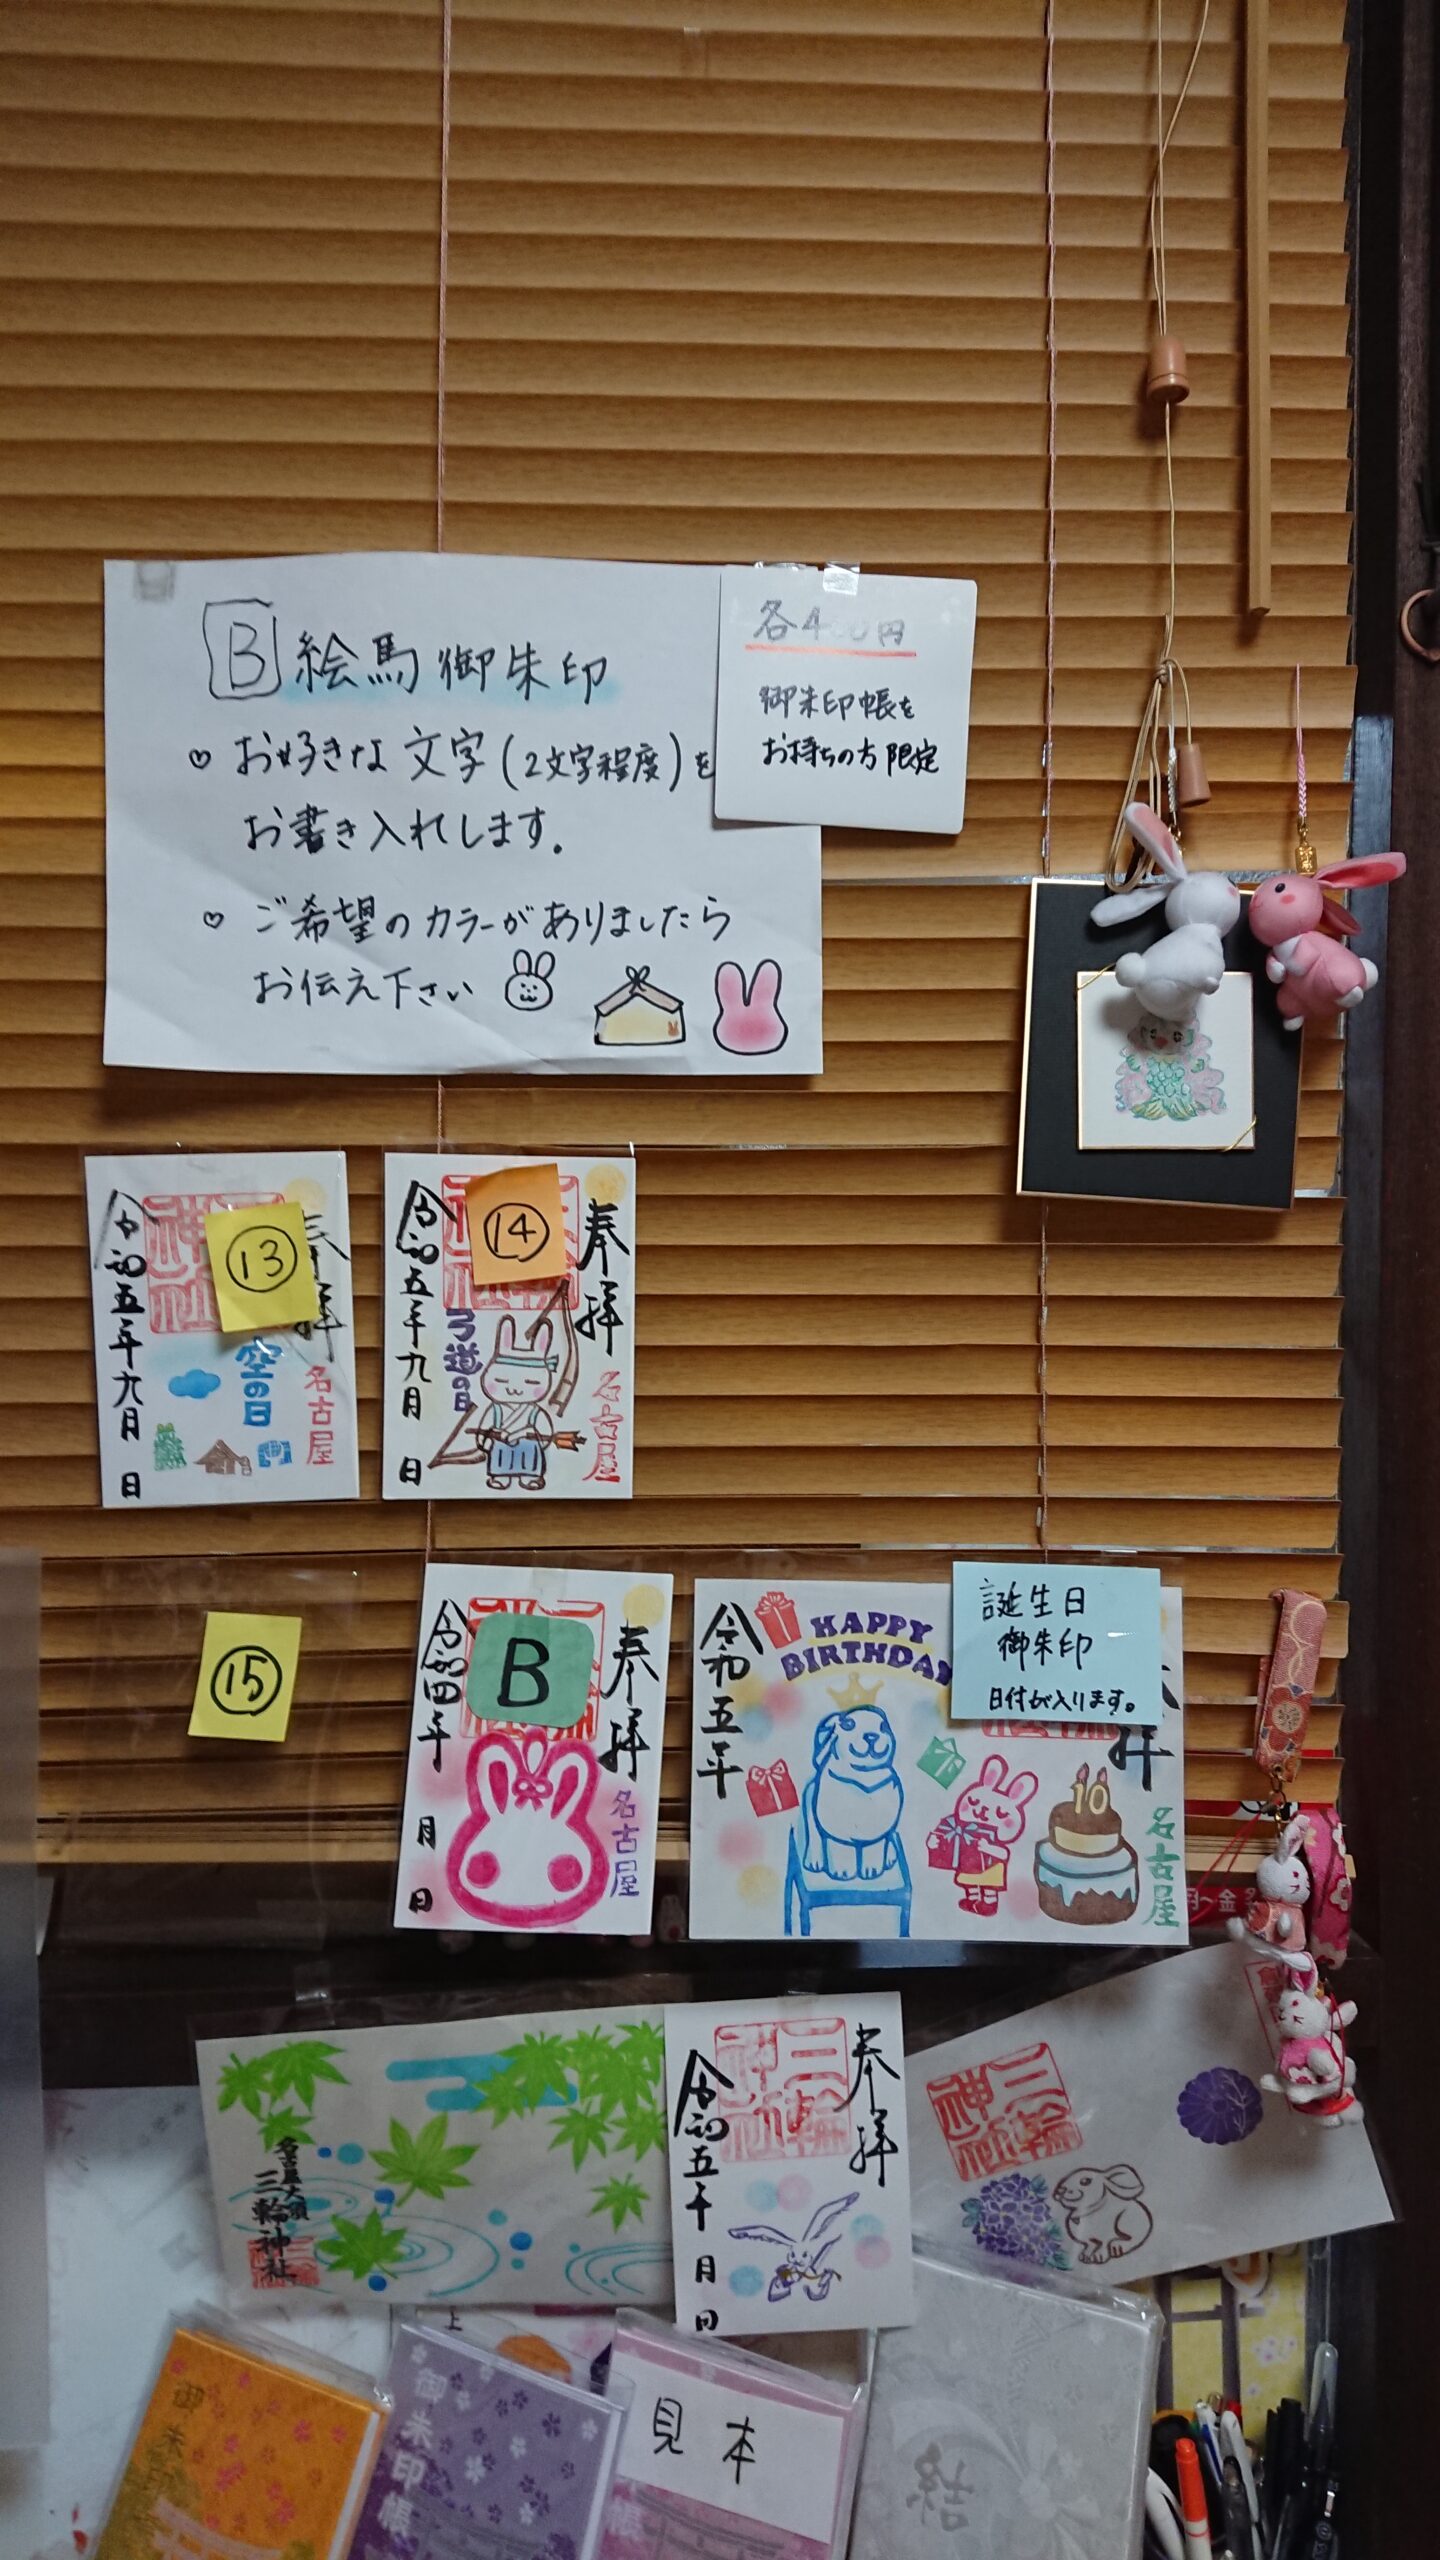 B 絵馬御朱印
♡ お好きな文字(2文字程度)を
お書き入れします。
♡ ご希望のカラーがありましたら
お伝え下さい
各400円
御朱印帳を
お持ちの方限定
⑬
奉拝
神社
空の日
名古屋
令和五年九月 日
⑭
奉拝
弓道の日
名古屋
令和五年九月 日
⑮
B
奉拝
名古屋
令和四年 月 日
誕生日
御朱印
日付が入ります。
HAPPY
BIRTHDAY
10
拝
名古屋
令和五年
名古屋大須
三輪神社
奉拝
三輪
神社
令和五年 月 日
三輪
神社
御朱印
御朱印帳
見本
帳
結